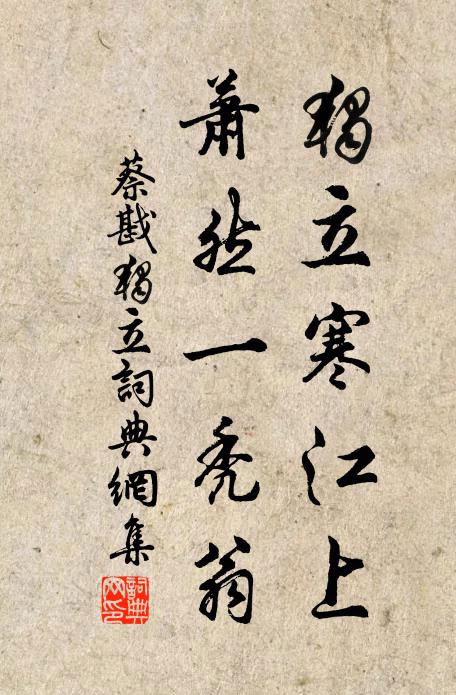 獨立寒江上
蕭然一禿翁
蔡戡獨立詞典網集
詞典網印